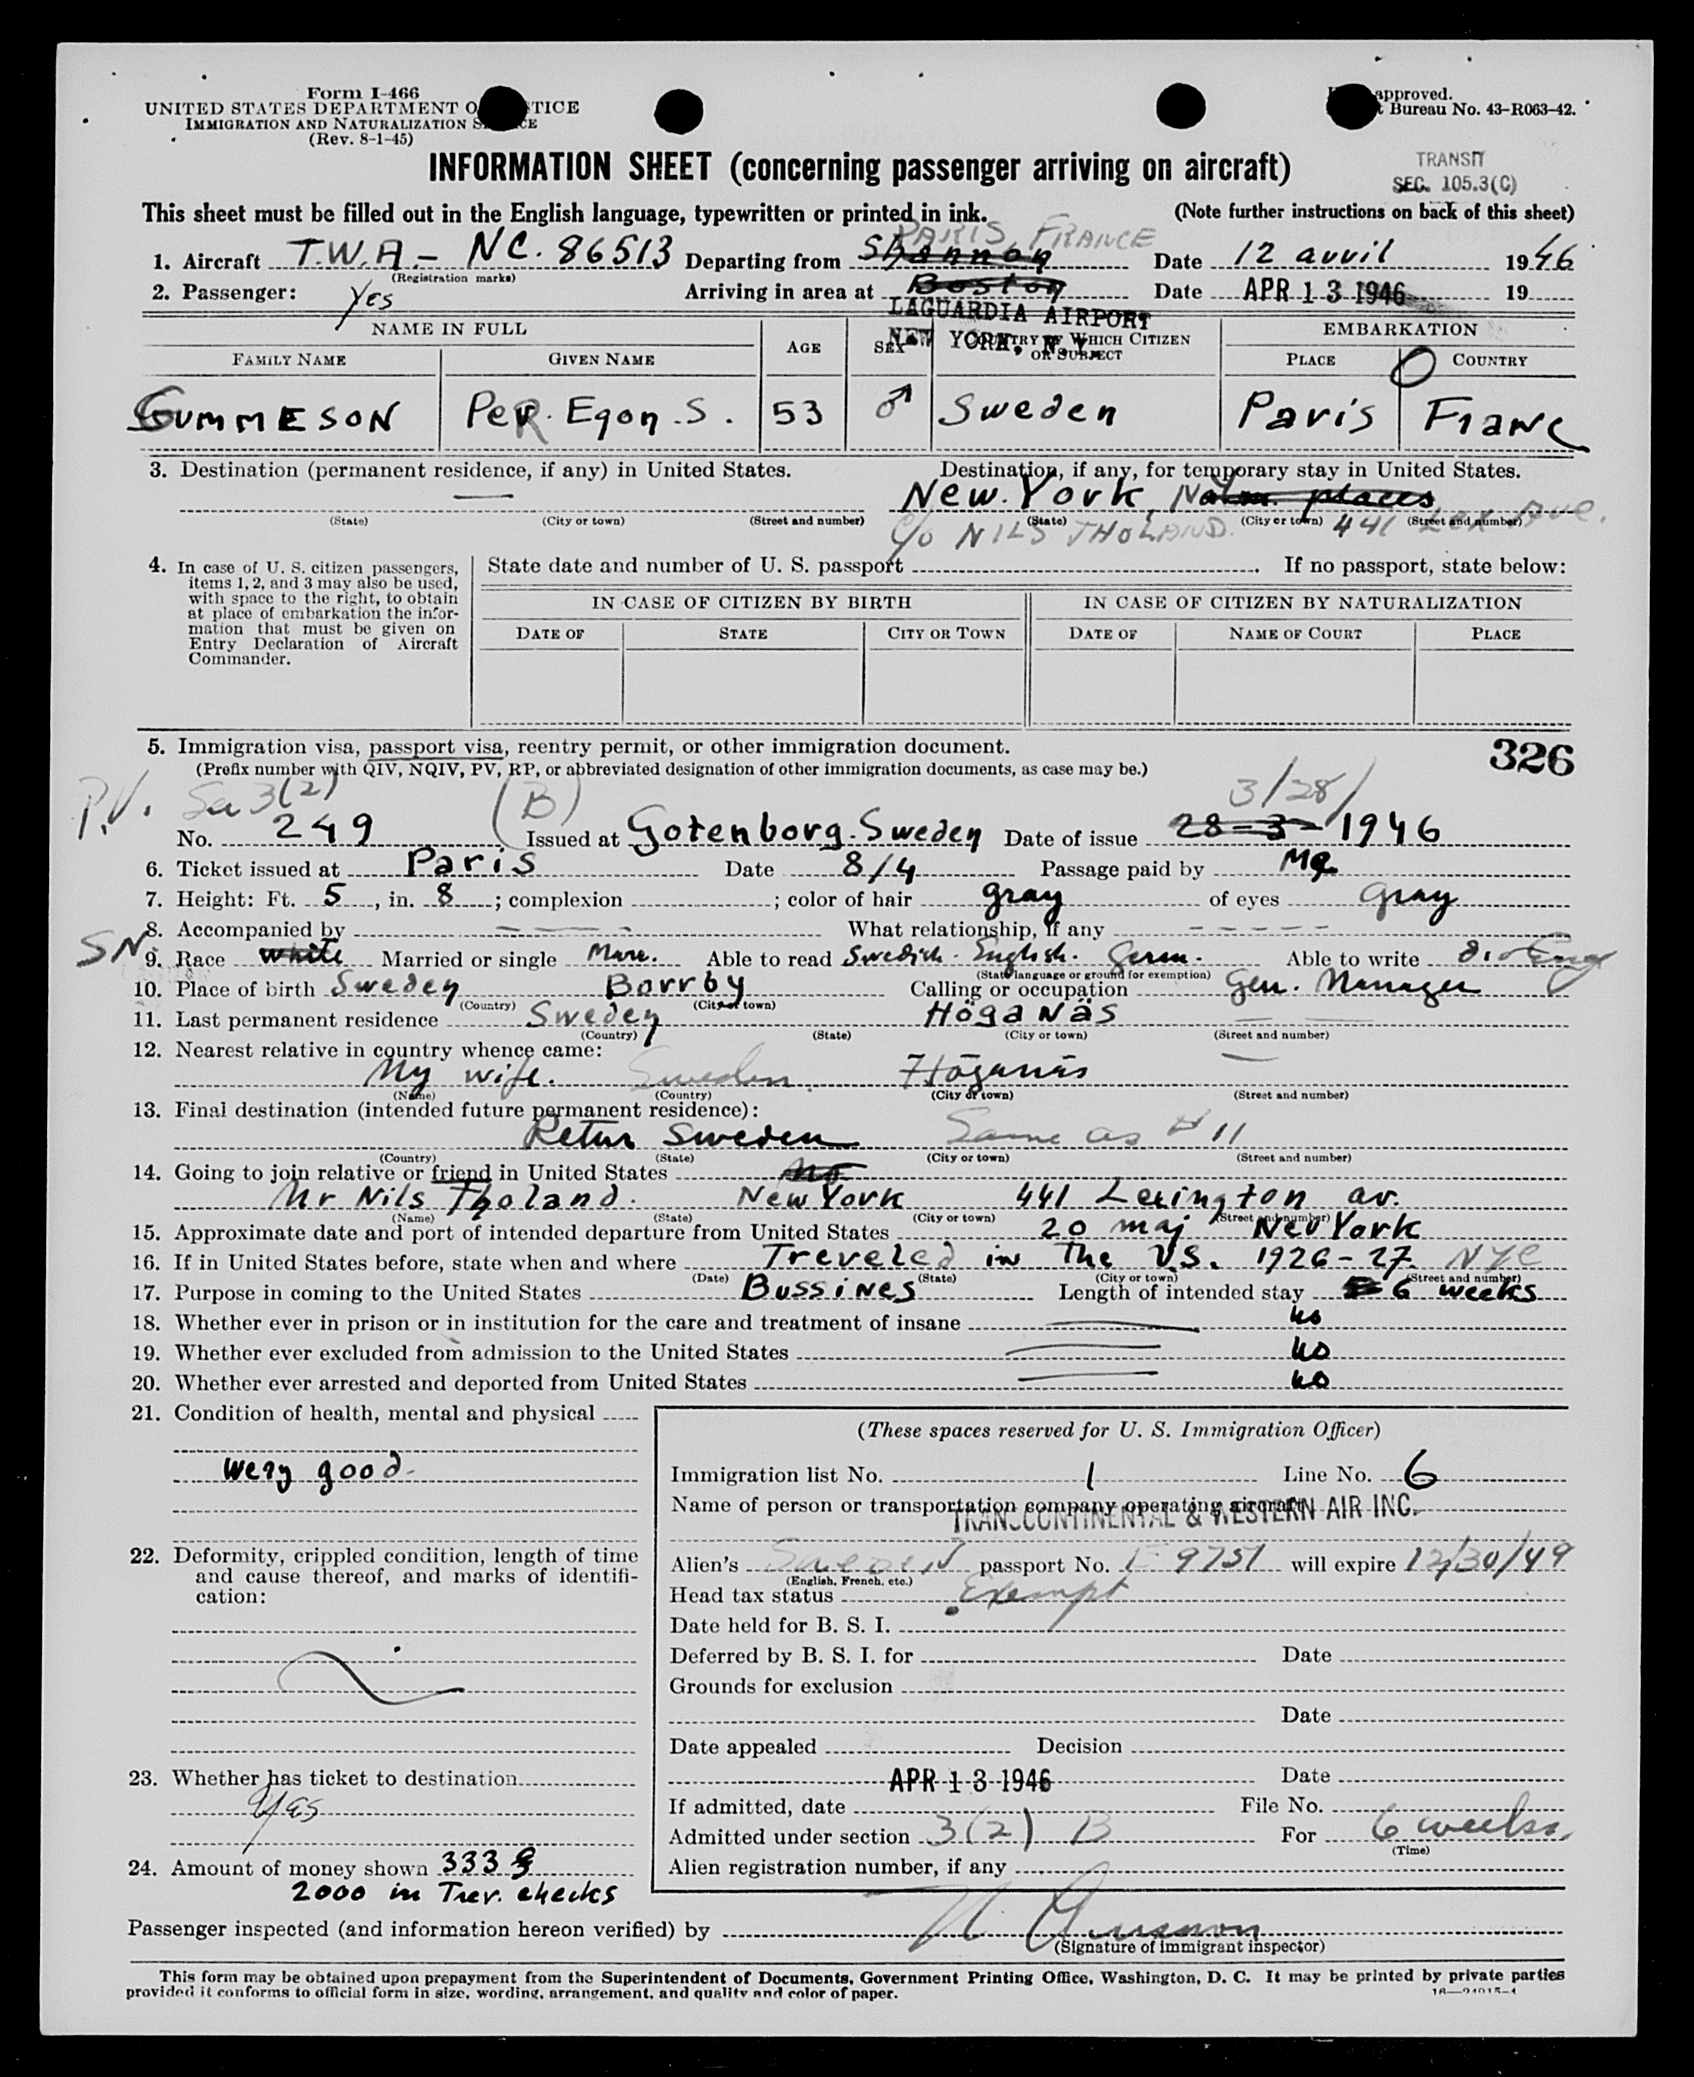 Form I-466
UNITED STATES DEPARTMENT O TICE
IMMIGRATION AND NATURALIZATION S CE
(Rev. 8-1-45)
approved.
Bureau No. 43-R063-42.
INFORMATION SHEET (concerning passenger arriving on aircraft)
TRANSIT
SEC. 105.3(C)
This sheet must be filled out in the English language, typewritten or printed in ink. (Note further instructions on back of this sheet)
PARIS, FRANCE
1. Aircraft T.W.A. - NC. 86513 Departing from Shannon Date 12 avril 1946
(Registration marks)
2. Passenger: Yes Arriving in area at Boston Date APR 13 1946 19
LAGUARDIA AIRPORT
NEW YORK, N.Y.
NAME IN FULL AGE SEX COUNTRY OF WHICH CITIZEN OR SUBJECT EMBARKATION
FAMILY NAME GIVEN NAME PLACE COUNTRY
GUMMESON Per. Egon. S. 53 ♂ Sweden Paris Franc
3. Destination (permanent residence, if any) in United States. Destination, if any, for temporary stay in United States.
— New. York, places
(State) (City or town) (Street and number) (State) (City or town) (Street and number)
C/O NILS THOLAND. 441 Lex Ave.
4. In case of U. S. citizen passengers, items 1, 2, and 3 may also be used, with space to the right, to obtain at place of embarkation the information that must be given on Entry Declaration of Aircraft Commander.
State date and number of U. S. passport . If no passport, state below:
IN CASE OF CITIZEN BY BIRTH IN CASE OF CITIZEN BY NATURALIZATION
DATE OF STATE CITY OR TOWN DATE OF NAME OF COURT PLACE
5. Immigration visa, passport visa, reentry permit, or other immigration document. 326
(Prefix number with QIV, NQIV, PV, RP, or abbreviated designation of other immigration documents, as case may be.)
P.V. 3(2) (B) 3/28/
No. 249 Issued at Gotenborg. Sweden Date of issue 28-3- 1946
6. Ticket issued at Paris Date 8/4 Passage paid by Me
7. Height: Ft. 5, in. 8; complexion ; color of hair gray of eyes gray
8. Accompanied by - - - - What relationship, if any - - - - -
SN
9. Race white Married or single Marr. Able to read Swedish. English. Germ. Able to write
(State language or ground for exemption)
10. Place of birth Sweden Borrby Calling or occupation Gen. Manager
(Country) (City or town)
11. Last permanent residence Sweden Höganäs — —
(Country) (State) (City or town) (Street and number)
12. Nearest relative in country whence came:
My wife. Sweden. Höganäs —
(Name) (Country) (City or town) (Street and number)
13. Final destination (intended future permanent residence):
Retur Sweden Same as # 11
(Country) (State) (City or town) (Street and number)
14. Going to join relative or friend in United States no
Mr Nils Tholand. New York 441 Lexington av.
(Name) (State) (City or town) (Street and number)
15. Approximate date and port of intended departure from United States 20 maj New York
16. If in United States before, state when and where Treveled in the U.S. 1926-27. NYC
(Date) (State) (City or town) (Street and number)
17. Purpose in coming to the United States Bussines Length of intended stay 6 weeks
18. Whether ever in prison or in institution for the care and treatment of insane — no
19. Whether ever excluded from admission to the United States — no
20. Whether ever arrested and deported from United States — no
21. Condition of health, mental and physical
wery good.
22. Deformity, crippled condition, length of time and cause thereof, and marks of identification:
23. Whether has ticket to destination
Yes
24. Amount of money shown 333 $
2000 in Trev. checks
(These spaces reserved for U. S. Immigration Officer)
Immigration list No. 1 Line No. 6
Name of person or transportation company operating aircraft
TRANSCONTINENTAL & WESTERN AIR INC.
Alien's Sweden passport No. 9751 will expire 12/30/49
(English, French, etc.)
Head tax status Exempt
Date held for B. S. I.
Deferred by B. S. I. for Date
Grounds for exclusion
Date
Date appealed Decision
APR 13 1946 Date
If admitted, date File No.
Admitted under section 3(2) B For 6 weeks.
(Time)
Alien registration number, if any
Passenger inspected (and information hereon verified) by
(Signature of immigrant inspector)
This form may be obtained upon prepayment from the Superintendent of Documents, Government Printing Office, Washington, D. C. It may be printed by private parties
provided it conforms to official form in size, wording, arrangement, and quality and color of paper.